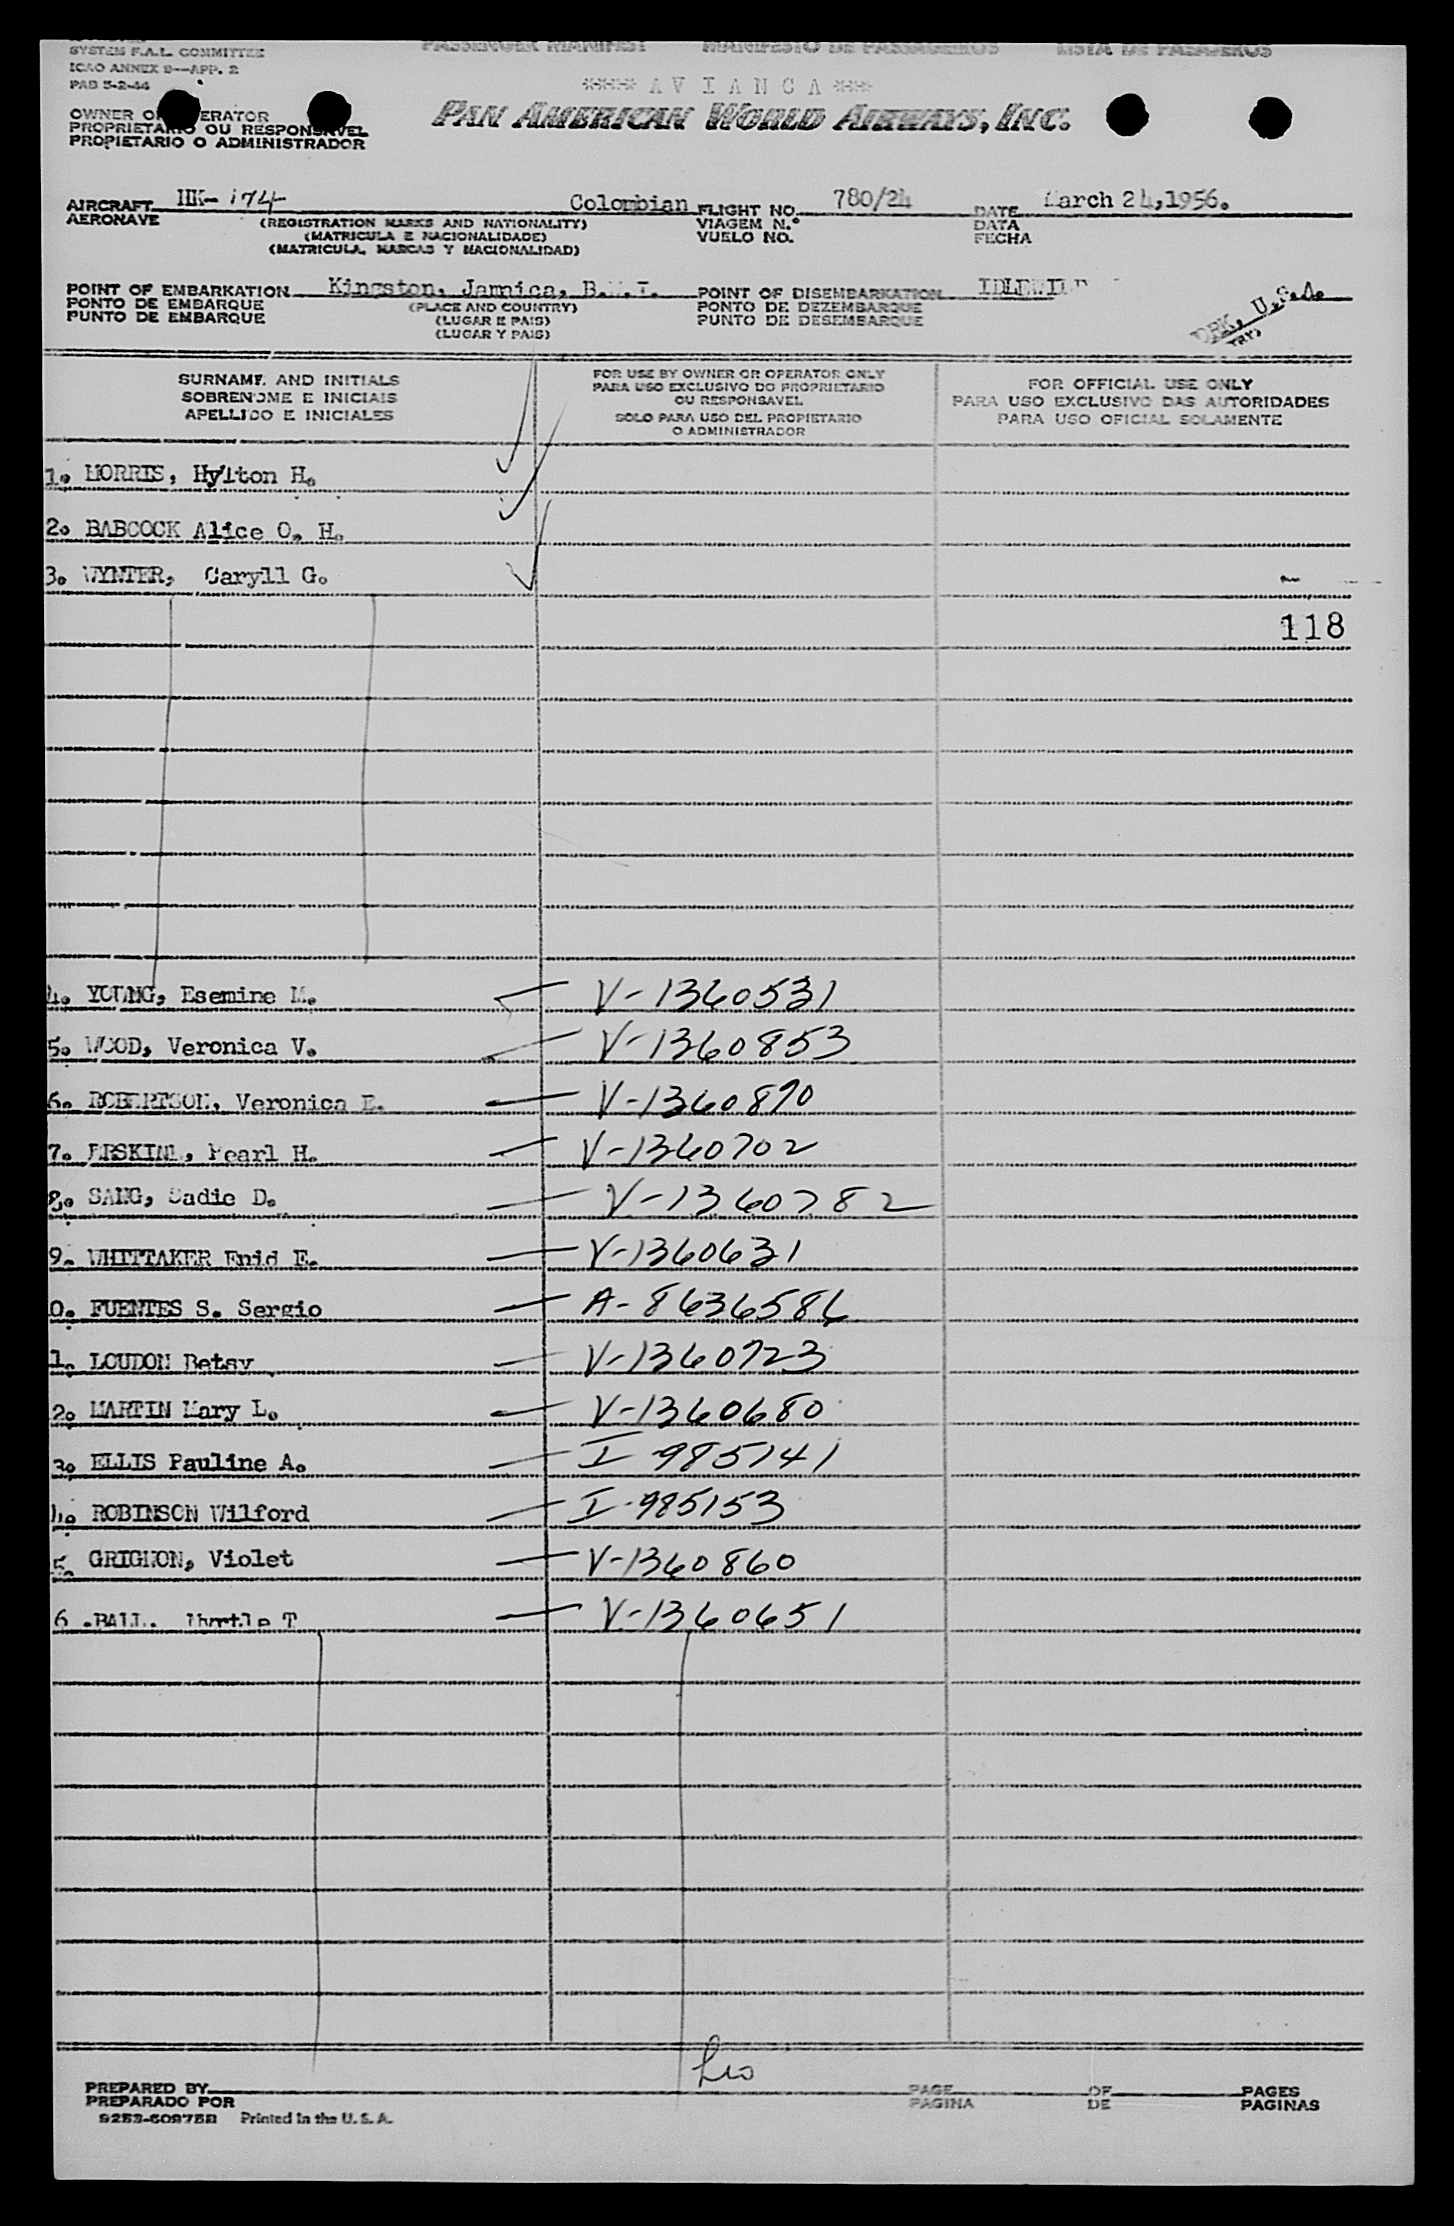 SYSTEM F.A.L. COMMITTEE
ICAO ANNEX 9—APP. 2
PAB 5-2-44
PASSENGER MANIFEST MANIFESTO DE PASSAGEIROS LISTA DE PASAJEROS
**** A V I A N C A ***
PAN AMERICAN WORLD AIRWAYS, INC.
OWNER OR OPERATOR
PROPRIETARIO OU RESPONSAVEL
PROPIETARIO O ADMINISTRADOR
AIRCRAFT HK-174 Colombian FLIGHT NO. 780/24 DATE March 24,1956.
AERONAVE (REGISTRATION MARKS AND NATIONALITY) VIAGEM N.° DATA
(MATRICULA E NACIONALIDADE) VUELO NO. FECHA
(MATRICULA, MARCAS Y NACIONALIDAD)
POINT OF EMBARKATION Kingston, Jamaica, B.W.I. POINT OF DISEMBARKATION IDLEWILD U.S.A.
PONTO DE EMBARQUE (PLACE AND COUNTRY) PONTO DE DEZEMBARQUE
PUNTO DE EMBARQUE (LUGAR E PAIS) PUNTO DE DESEMBARQUE
(LUGAR Y PAIS)
SURNAME AND INITIALS
SOBRENOME E INICIAIS
APELLIDO E INICIALES
FOR USE BY OWNER OR OPERATOR ONLY
PARA USO EXCLUSIVO DO PROPRIETARIO
OU RESPONSAVEL
SOLO PARA USO DEL PROPIETARIO
O ADMINISTRADOR
FOR OFFICIAL USE ONLY
PARA USO EXCLUSIVO DAS AUTORIDADES
PARA USO OFICIAL SOLAMENTE
1. MORRIS, Hylton H.
2. BABCOCK Alice O. H.
3. WYNTER, Caryll G.
118
4. YOUNG, Esemine M. V-1360531
5. WOOD, Veronica V. V-1360853
6. ROBERTSON, Veronica E. V-1360870
7. ERSKINE, Pearl H. V-1360702
8. SANG, Sadie D. V-1360782
9. WHITTAKER Enid E. V-1360631
0. FUENTES S. Sergio A-8636586
1. LOUDON Betsy V-1360723
2. MARTIN Mary L. V-1360680
3. ELLIS Pauline A. I-985141
4. ROBINSON Wilford I-985153
5. GRIGNON, Violet V-1360860
6. BALL. Myrtle T V-1360651
PREPARED BY PAGE OF PAGES
PREPARADO POR PAGINA DE PAGINAS
9253-609758 Printed in the U.S.A.